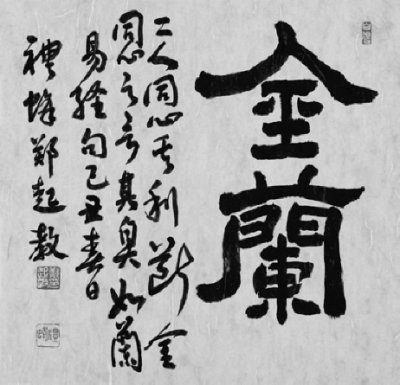 金蘭
二人同心其利斷金
同心之言其臭如蘭
易經句己丑春日
鄭起教